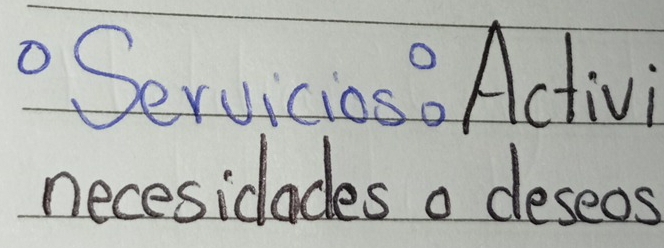 ° Servicios: Activi
necesidades o deseos